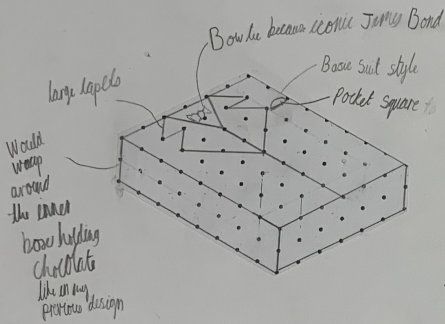 Bow tie because iconic James Bond
Basic suit style
Pocket square
large lapels
Would
wrap
around
the inner
base holding
chocolate
like in my
previous design